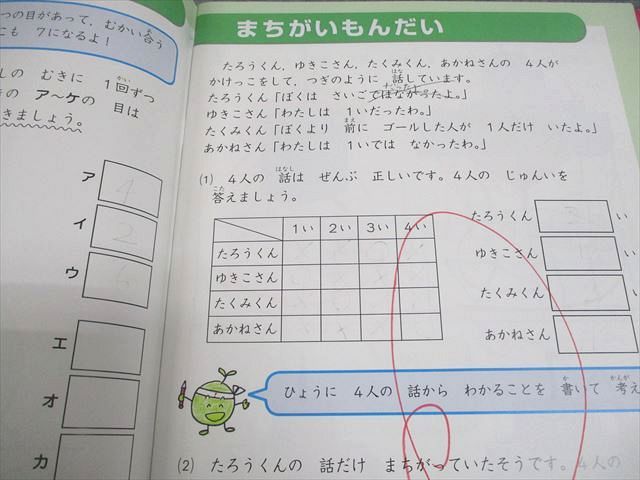 つの目があって、むかい合う
にも 7になるよ!
しの むきに 1回ずつ
の ア~ケの 目は
きましょう。
ア 4
イ 2
ウ 6
エ
オ
カ
まちがいもんだい
たろうくん、ゆきこさん、たくみくん、あかねさんの 4人が
かけっこをして、つぎのように 話しています。
たろうくん「ぼくは さいごではなかったよ。」
ゆきこさん「わたしは 1いだったわ。」
たくみくん「ぼくより 前に ゴールした人が 1人だけ いたよ。」
あかねさん「わたしは 1いでは なかったわ。」
(1) 4人の 話は ぜんぶ 正しいです。4人の じゅんいを
答えましょう。
1い 2い 3い 4い
たろうくん
ゆきこさん
たくみくん
あかねさん
たろうくん 3 い
ゆきこさん い
たくみくん い
あかねさん
ひょうに 4人の 話から わかることを 書いて 考え
(2) たろうくんの 話だけ まちがっていたそうです。4人の